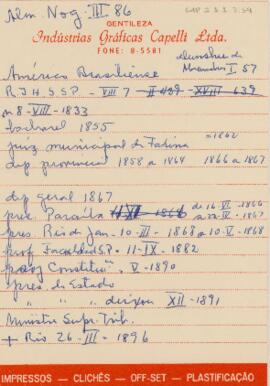 Alm. Nog. III - 86
GENTILEZA
Indústrias Gráficas Capelli Ltda.
FONE: 8-5581
I, 57
Américo Brasiliense
R.I.H.S.S.P - VIII 7 - II 439 - XVIII - 639
n 8 - VIII - 1833
bacharel 1855
juiz municipal de =1862
dep provincial 1858 a 1864 1866 a 1867
dep geral 1867
pres. Paraíba de 16-VI-1866
a 22-IV-1867
pres. Rio de Jan. - 10 - III - 1868 a 10-V-1868
prof Faculdade S.P. - 11 - IX - 1882
Constituiç. V - 1890
pres do Estado
" " " deixou XII - 1891
Ministro Supr. Trib.
+ Rio 26 - III - 1896
IMPRESSOS — CLICHÊS — OFF-SET — PLASTIFICAÇÃO